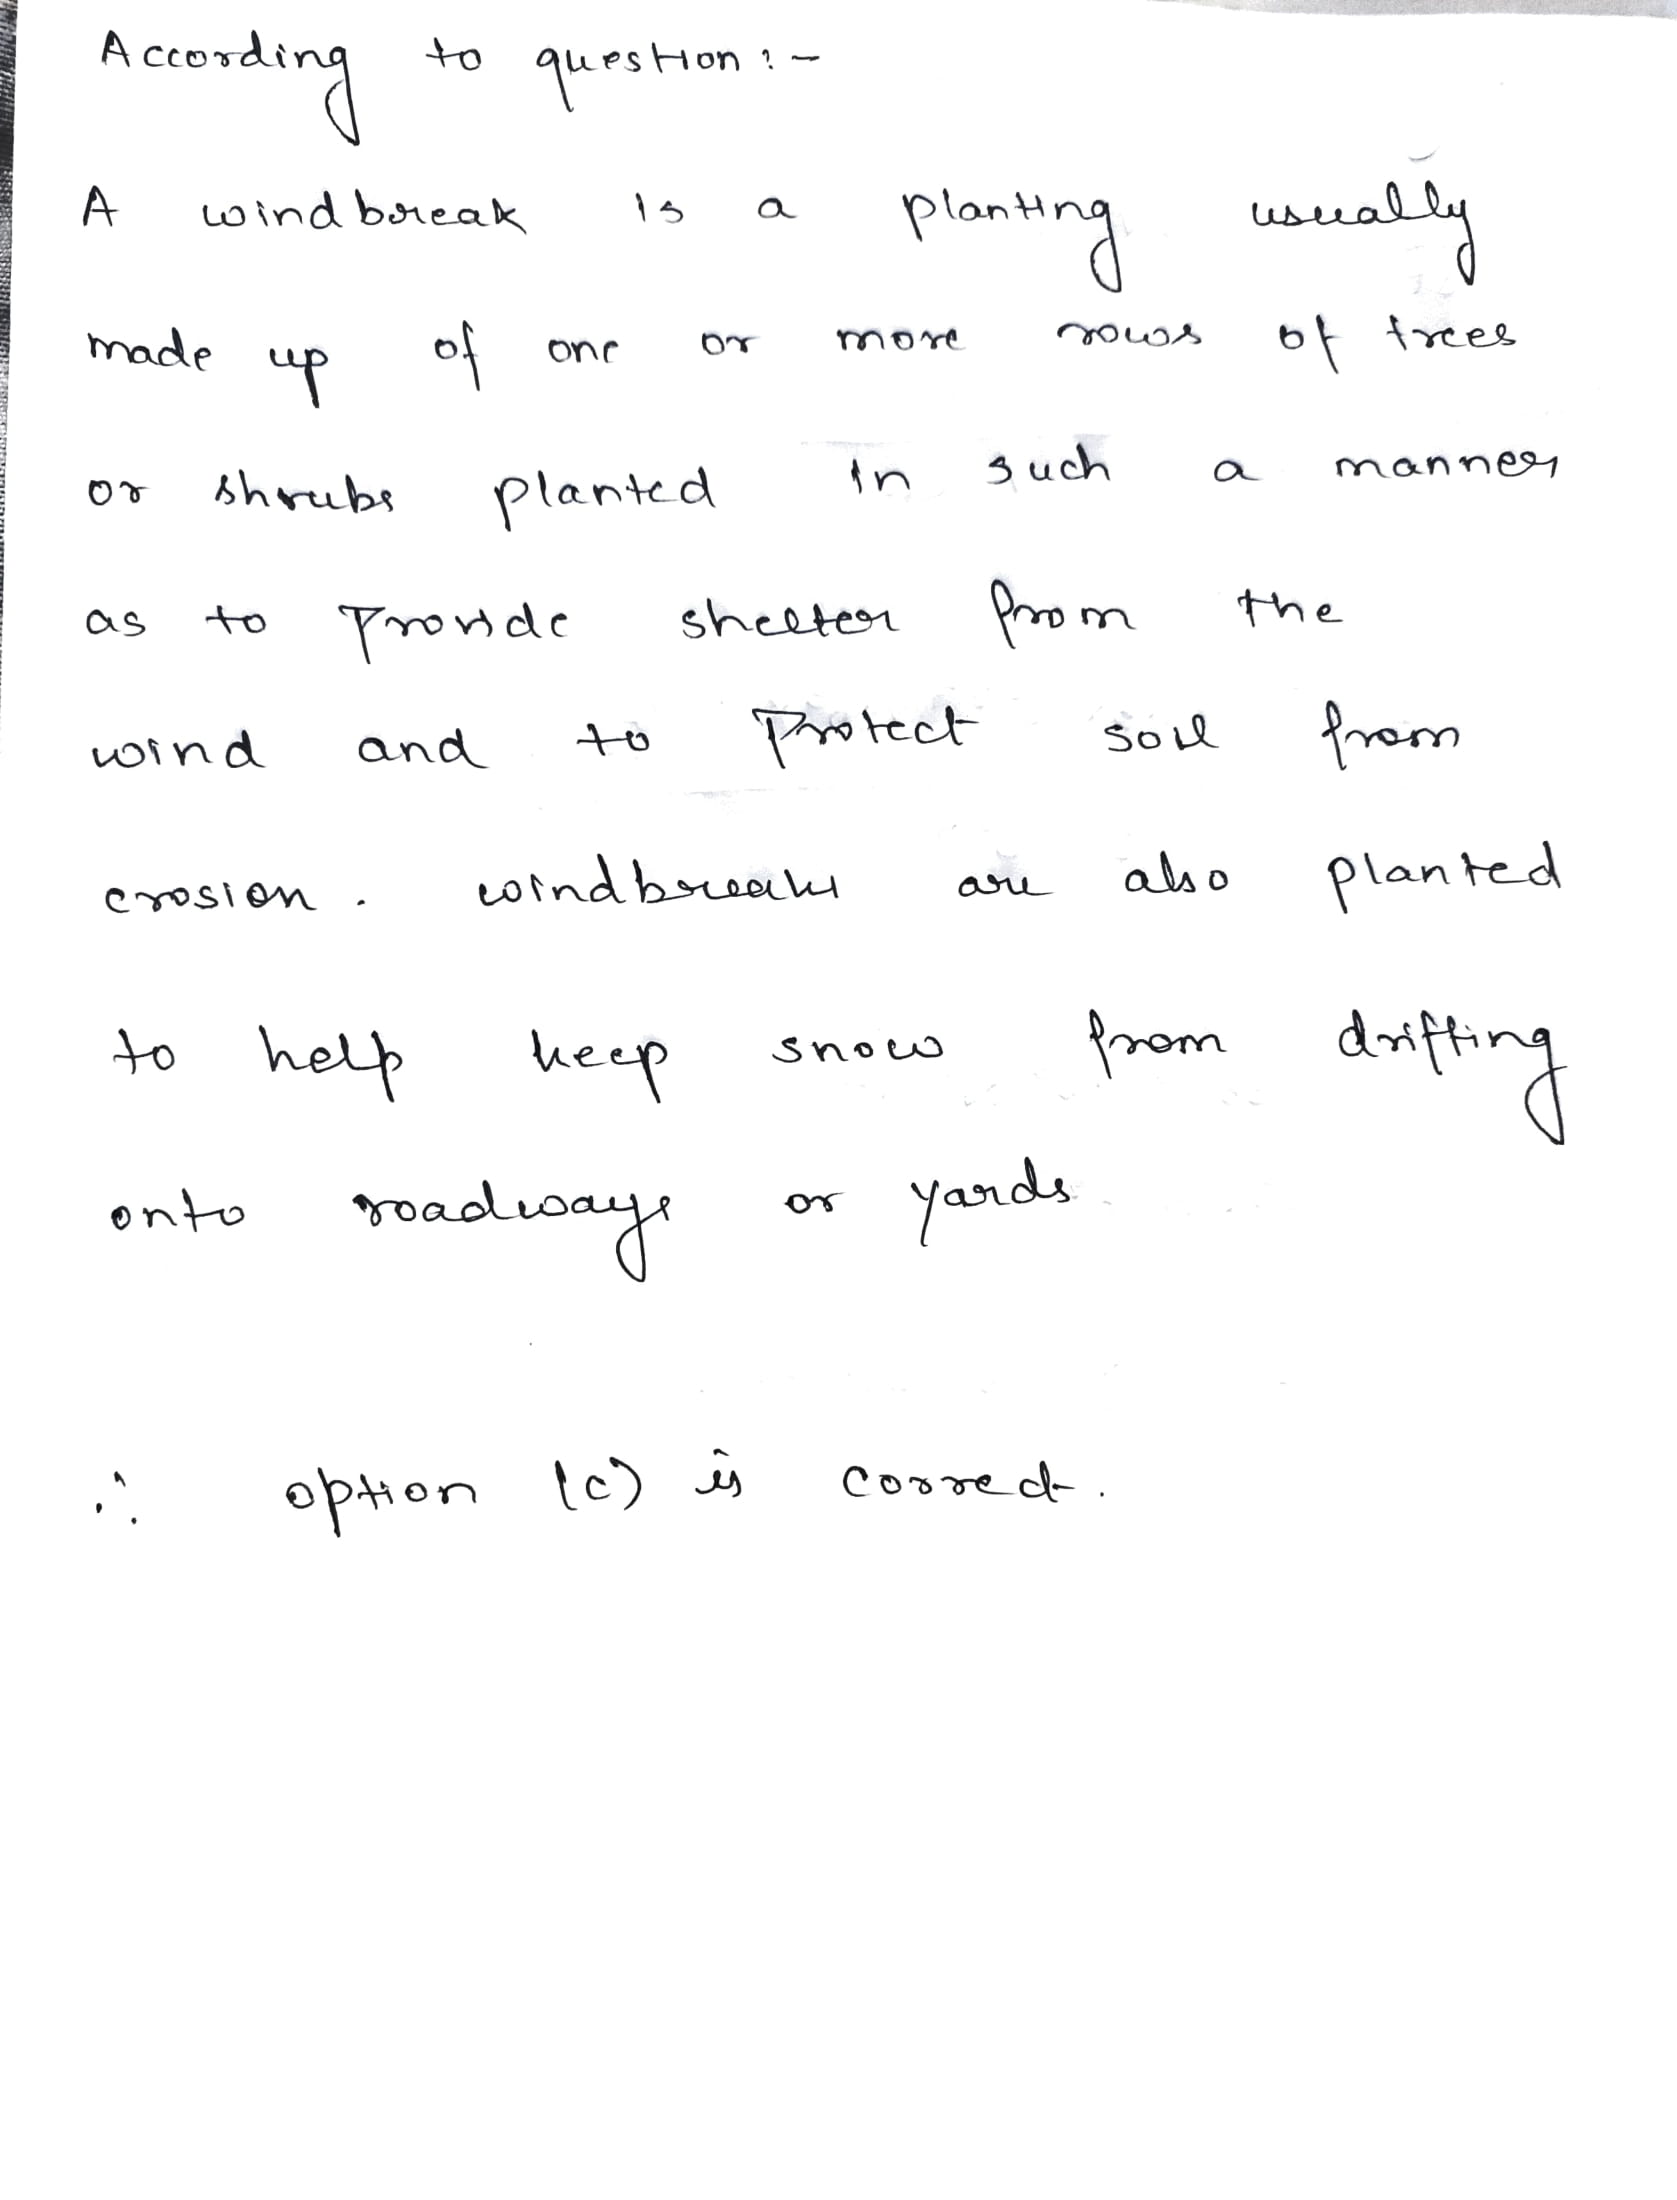 According to question :-
A windbreak is a planting usually
made up of one or more rows of trees
or shrubs planted in such a manner
as to Provide shelter from the
wind and to Protect soil from
erosion. windbreaks are also planted
to help keep snow from drifting
onto roadways or yards
∴ option (c) is correct.